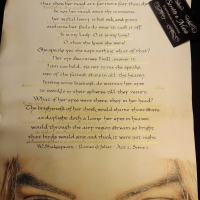 that thou her maid art far more fair than she
Be not her maid, since she is envious;
her vestal livery is but sick and green
and none but fools do wear it; cast it off.
It is my lady, O, it is my love!
O, that she knew she were!
She speaks yet she says nothing: what of that?
Her eye discourses; I will answer it.
I am too bold, 'tis not to me she speaks:
two of the fairest stars in all the heaven,
having some business, do entreat her eyes
to twinkle in their spheres till they return.
What if her eyes were there, they in her head?
The brightness of her cheek would shame those stars,
as daylight doth a lamp; her eyes in heaven
would through the airy region stream so bright
that birds would sing and think it were not night.
W. Shakespeare. Romeo & Juliet - Act 2, Scene 2